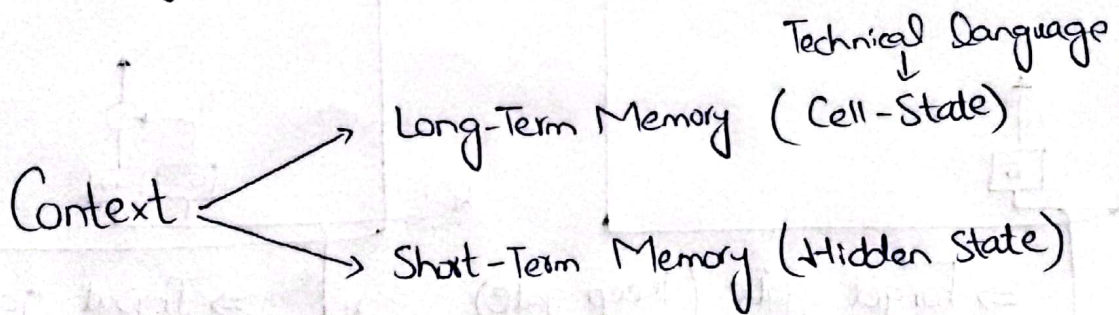 Technical Language
↓
Long-Term Memory (Cell-State)
Context
Short-Term Memory (Hidden State)